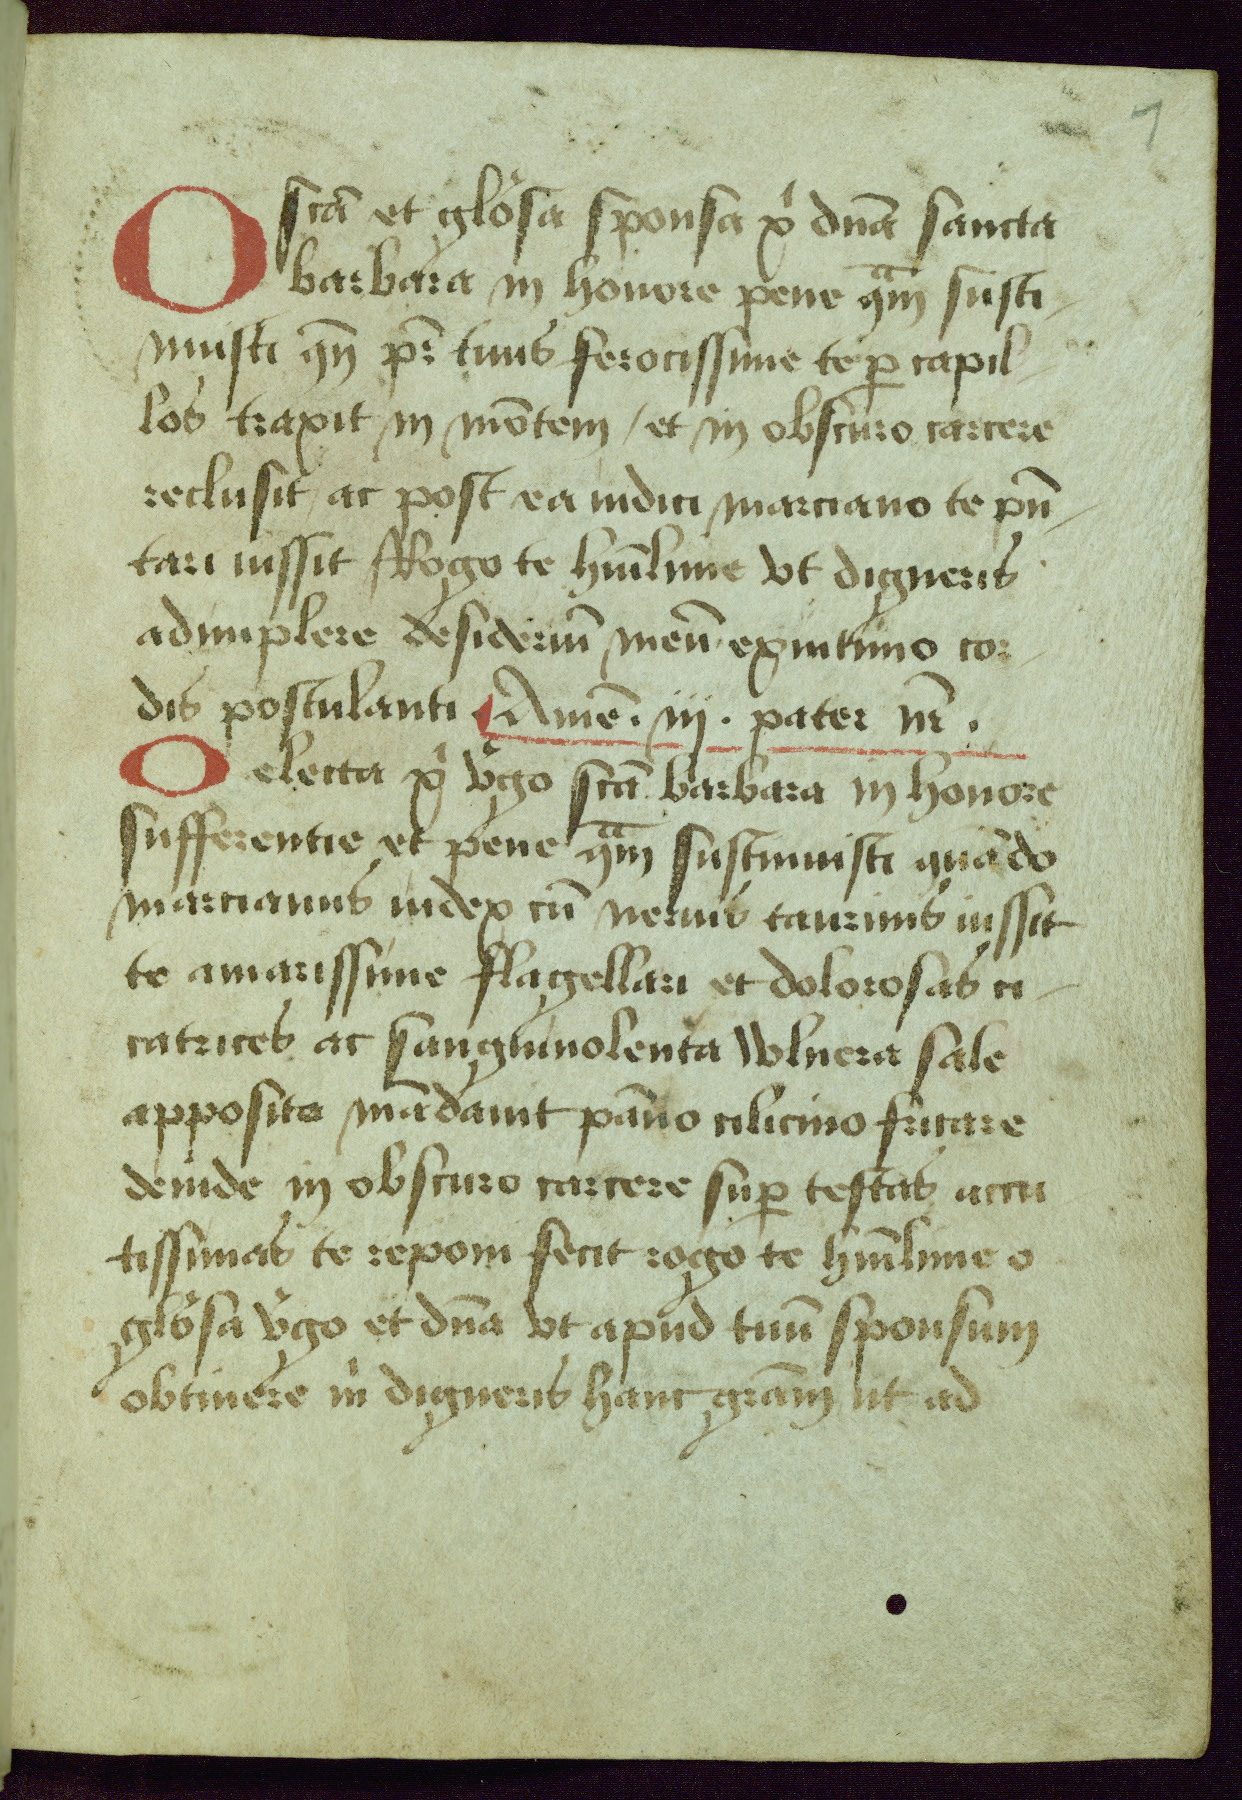 7
O scā et glo᷑sa sponsa xp̄i dn̄a sancta
barbara in honore pene qᵃm susti-
nuisti qn̄ pr̄ tuus ferocissime te ꝑ capil-
los traxit in mōtem / et in obscuro carcere
reclusit, ac post ea iudici marciano te pn̄-
tari iussit Rogo te hūilime vt digneris
adimplere desideriū meū ex intimo cor-
dis postulanti Amē . iij . pater nr̄ .
O electa xp̄i v̾go scā barbara in honore
sufferentie et pene qᵃm sustinuisti quādo
marcianus iudex cū neruis taurinis iussit
te amarissime flagellari et dolorosas ci-
catrices ac sanguinolenta wlnera sale
apposito mādauit pāno cilicino fricare
deinde in obscuro carcere suꝑ testas accu
tissimas te reponi fecit rogo te hūilime o
glo᷑sa v̾go et dn̄a vt apud tuū sponsum
obtinere m̄ digneris hanc grām ut ad